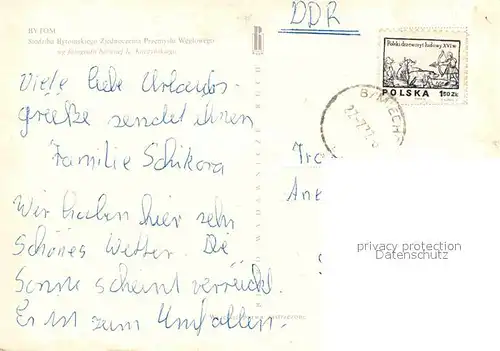 BYTOM
Siedziba Bytomskiego Zjednoczenia Przemysłu Węglowego
DDR
Polski drzeworyt ludowy XVI w.
POLSKA 1,50 ZŁ
Viele liebe Urlaubs-
grüße sendet ihnen
Familie Schikora
Wir haben hier sehr
schönes Wetter. Die
Sonne scheint verrückt.
Es ist zum Umfallen.
privacy protection
Datenschutz